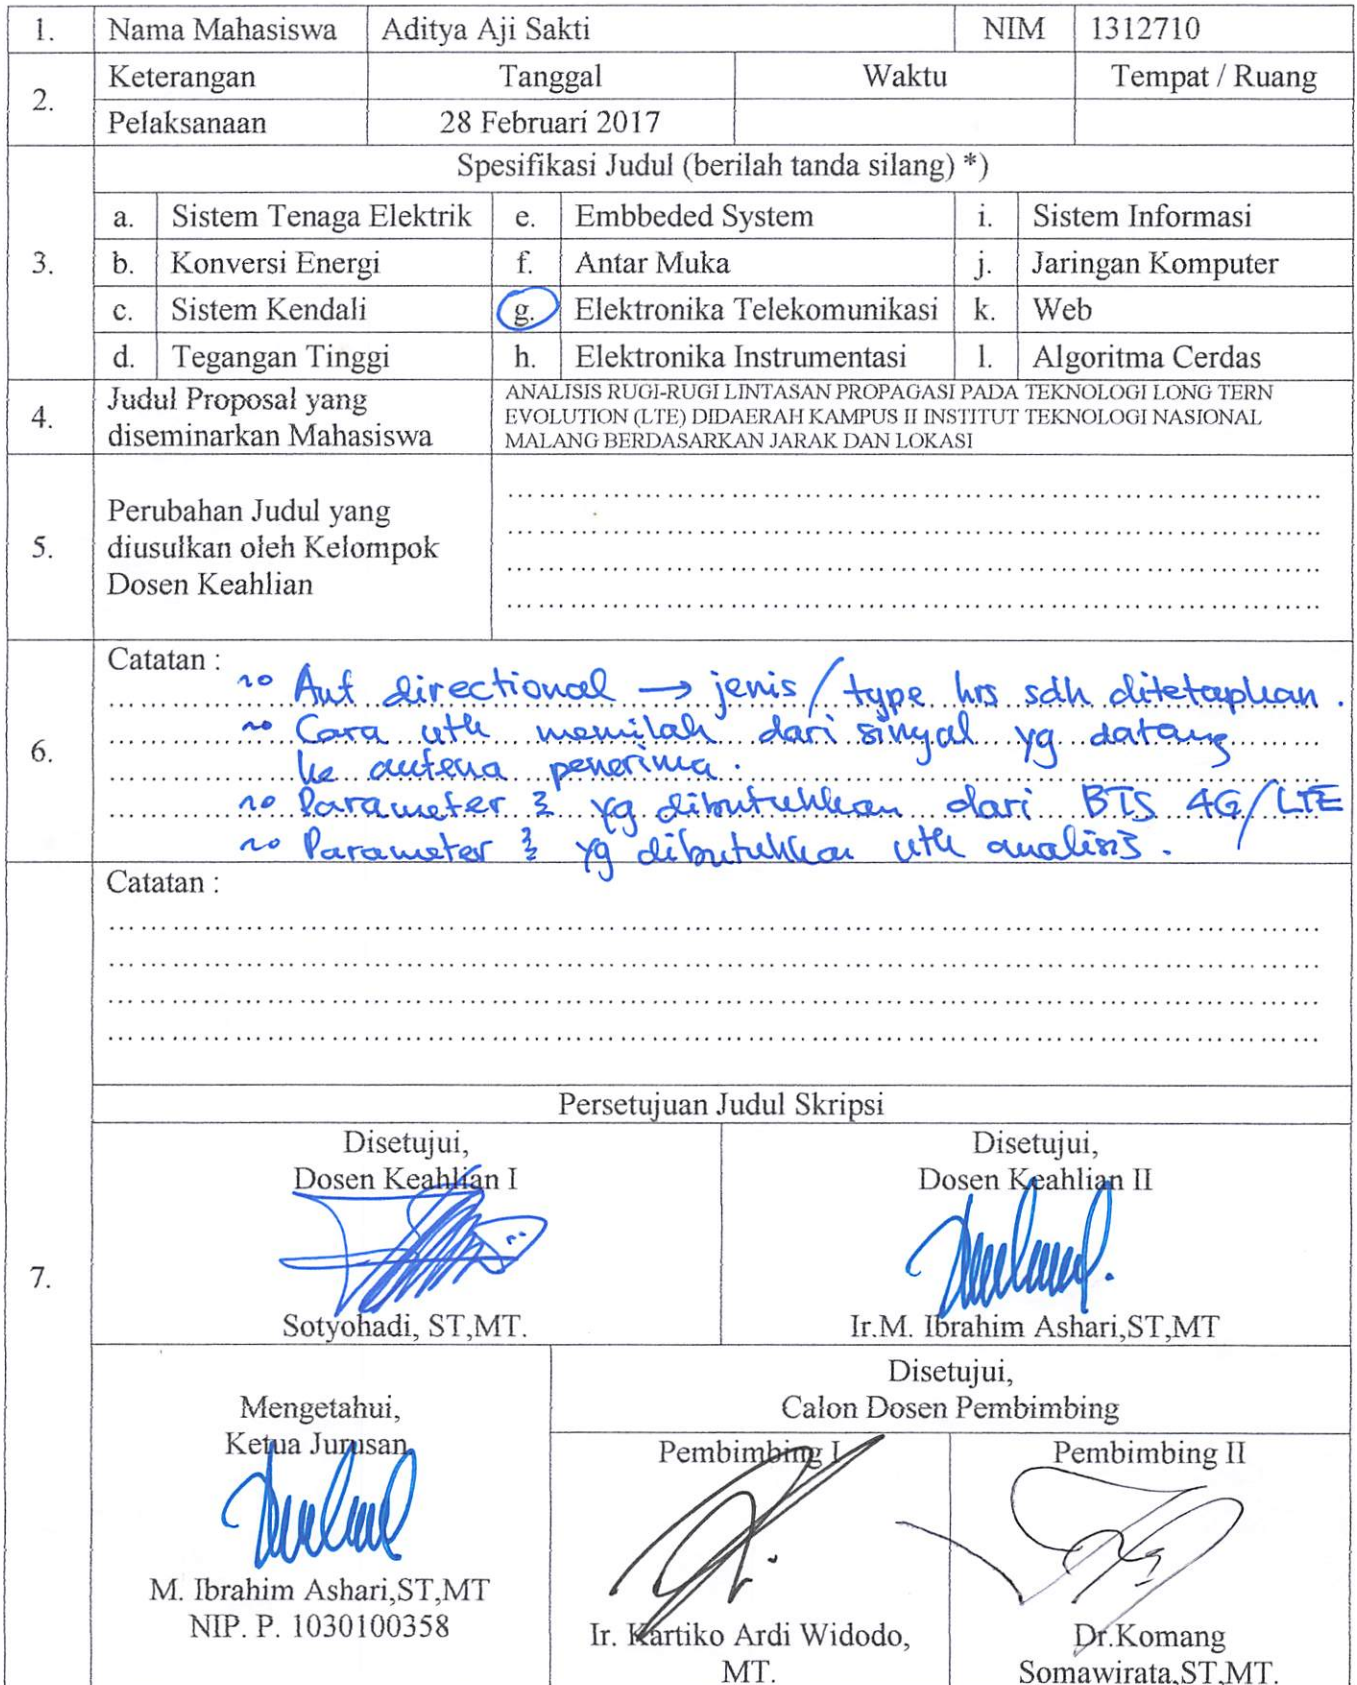 1. Nama Mahasiswa Aditya Aji Sakti NIM 1312710
2. Keterangan Tanggal Waktu Tempat / Ruang
Pelaksanaan 28 Februari 2017
3. Spesifikasi Judul (berilah tanda silang) *)
a. Sistem Tenaga Elektrik e. Embbeded System i. Sistem Informasi
b. Konversi Energi f. Antar Muka j. Jaringan Komputer
c. Sistem Kendali g. Elektronika Telekomunikasi k. Web
d. Tegangan Tinggi h. Elektronika Instrumentasi l. Algoritma Cerdas
4. Judul Proposal yang
diseminarkan Mahasiswa
ANALISIS RUGI-RUGI LINTASAN PROPAGASI PADA TEKNOLOGI LONG TERN
EVOLUTION (LTE) DIDAERAH KAMPUS II INSTITUT TEKNOLOGI NASIONAL
MALANG BERDASARKAN JARAK DAN LOKASI
5. Perubahan Judul yang
diusulkan oleh Kelompok
Dosen Keahlian
6. Catatan :
Ant directional → jenis/type hrs sdh ditetapkan.
Cara utk memilah dari sinyal yg datang
ke antena penerima.
Parameter2 yg dibutuhkan dari BTS 4G/LTE
Parameter2 yg dibutuhkan utk analisis.
7. Catatan :
Persetujuan Judul Skripsi
Disetujui,
Dosen Keahlian I
Sotyohadi, ST,MT.
Disetujui,
Dosen Keahlian II
Ir.M. Ibrahim Ashari,ST,MT
Mengetahui,
Ketua Jurusan
M. Ibrahim Ashari,ST,MT
NIP. P. 1030100358
Disetujui,
Calon Dosen Pembimbing
Pembimbing I
Ir. Kartiko Ardi Widodo,
MT.
Pembimbing II
Dr.Komang
Somawirata,ST,MT.